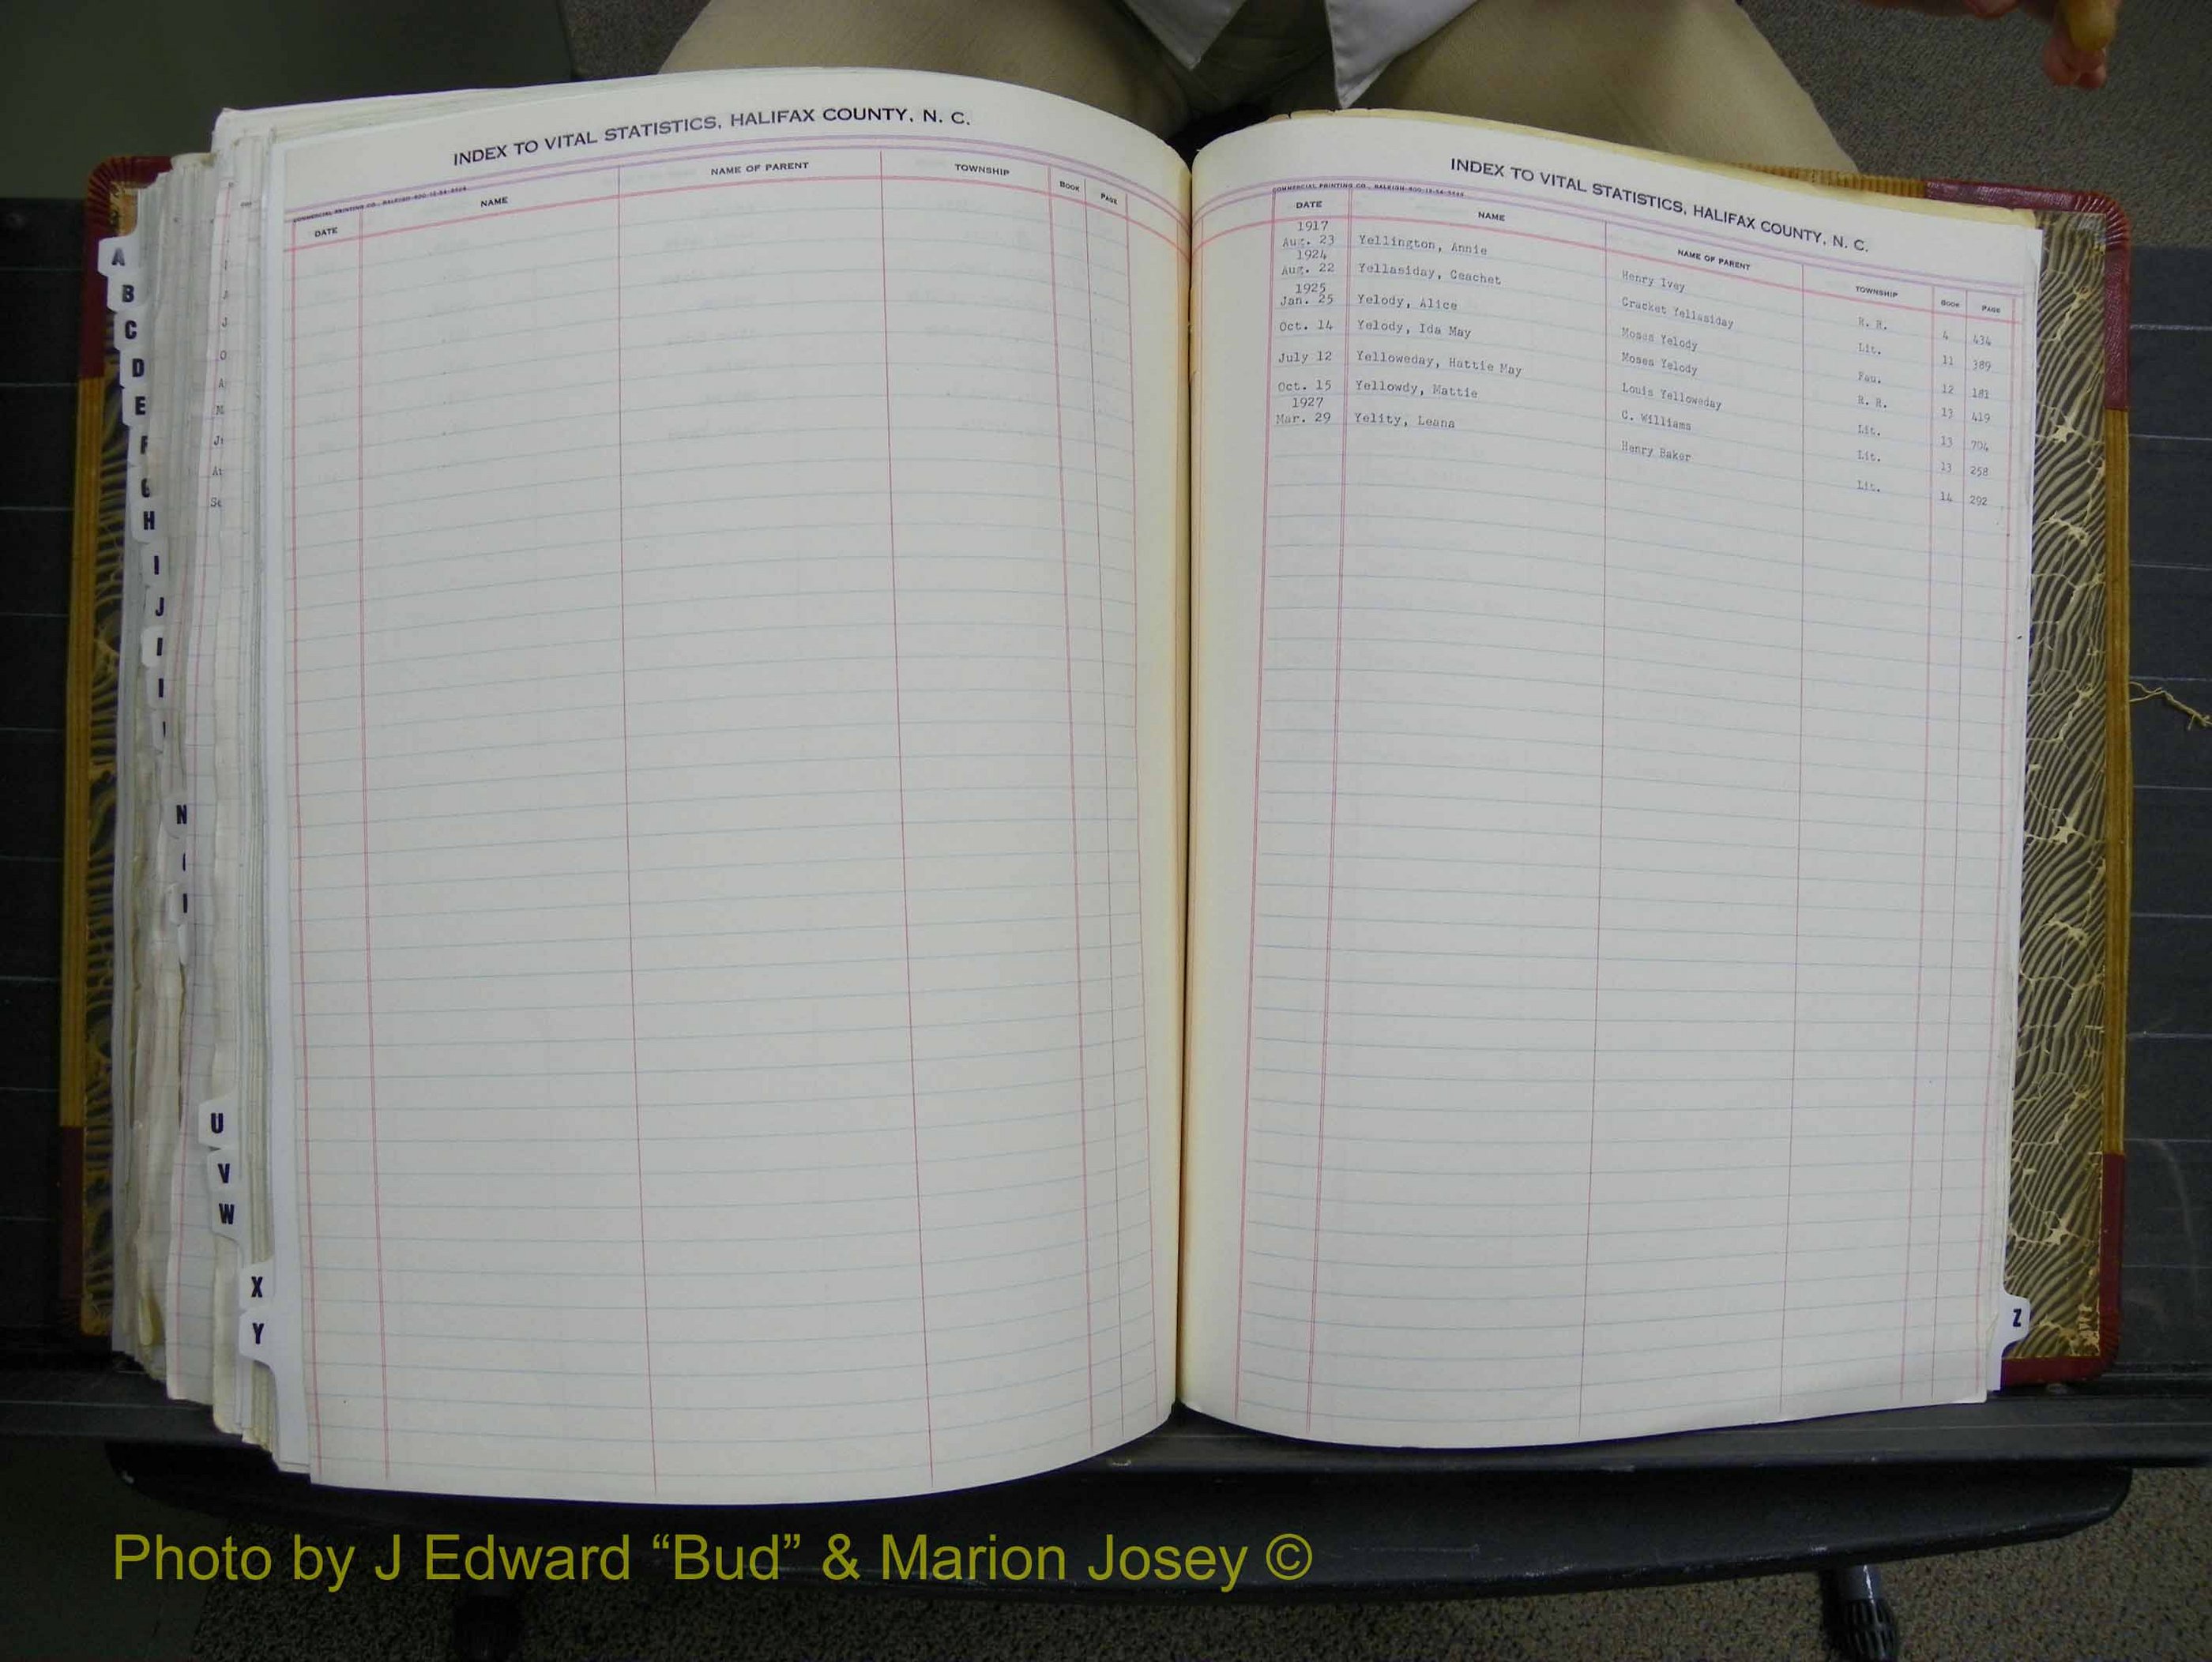 INDEX TO VITAL STATISTICS, HALIFAX COUNTY, N. C.
COMMERCIAL PRINTING CO., RALEIGH
DATE NAME NAME OF PARENT TOWNSHIP BOOK PAGE
A
B
C
D
E
F
G
H
I
J
N
U
V
W
X
Y
INDEX TO VITAL STATISTICS, HALIFAX COUNTY, N. C.
COMMERCIAL PRINTING CO., RALEIGH
DATE NAME NAME OF PARENT TOWNSHIP BOOK PAGE
1917
Aug. 23 Yellington, Annie Henry Ivey R. R. 4 434
1924
Aug. 22 Yellasiday, Ceachet Cracket Yellasiday Lit. 11 389
1925
Jan. 25 Yelody, Alice Moses Yelody Fau. 12 181
Oct. 14 Yelody, Ida May Moses Yelody R. R. 13 419
July 12 Yelloweday, Hattie May Louis Yelloweday Lit. 13 704
Oct. 15 Yellowdy, Mattie C. Williams Lit. 13 258
1927
Mar. 29 Yelity, Leana Henry Baker Lit. 14 292
Z
Photo by J Edward “Bud” & Marion Josey ©